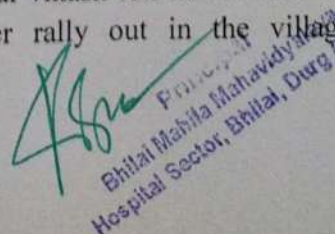 er rally out in the villag
Principal
Bhilai Mahila Mahavidyalaya
Hospital Sector, Bhilai, Durg